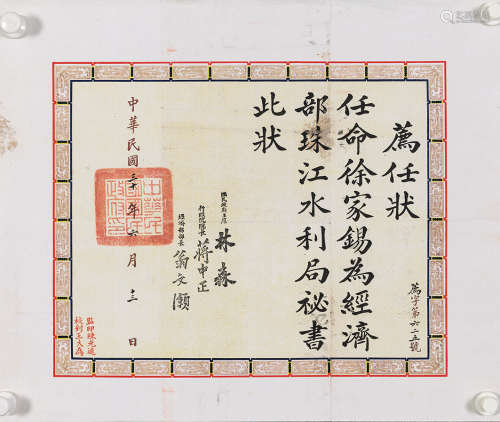 薦任狀
任命徐家錫為經濟
部珠江水利局祕書
此狀
國民政府主席 林森
行政院院長 蔣中正
經濟部部長 翁文灝
中華民國三十年六月十三日
中華民國政府印
薦字第六二五號
監印陳光遠
校對王久為